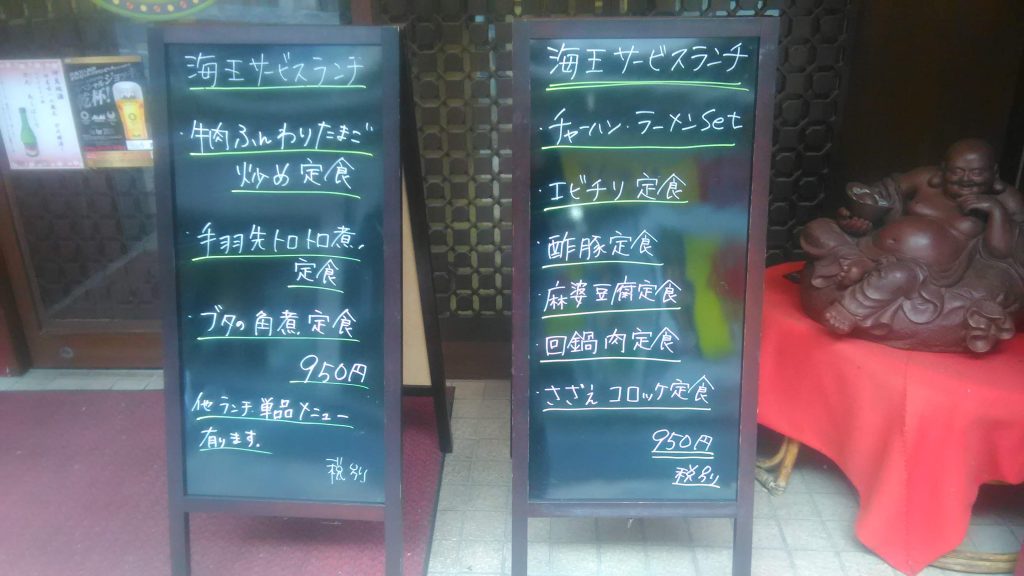 海王サービスランチ
・牛肉ふんわりたまご
炒め定食
・手羽先トロトロ煮
定食
・ブタの角煮定食
950円
他ランチ単品メニュー
有ります。
税別
海王サービスランチ
・チャーハン・ラーメンset
・エビチリ定食
・酢豚定食
・麻婆豆腐定食
・回鍋肉定食
・さざえコロッケ定食
950円
税別